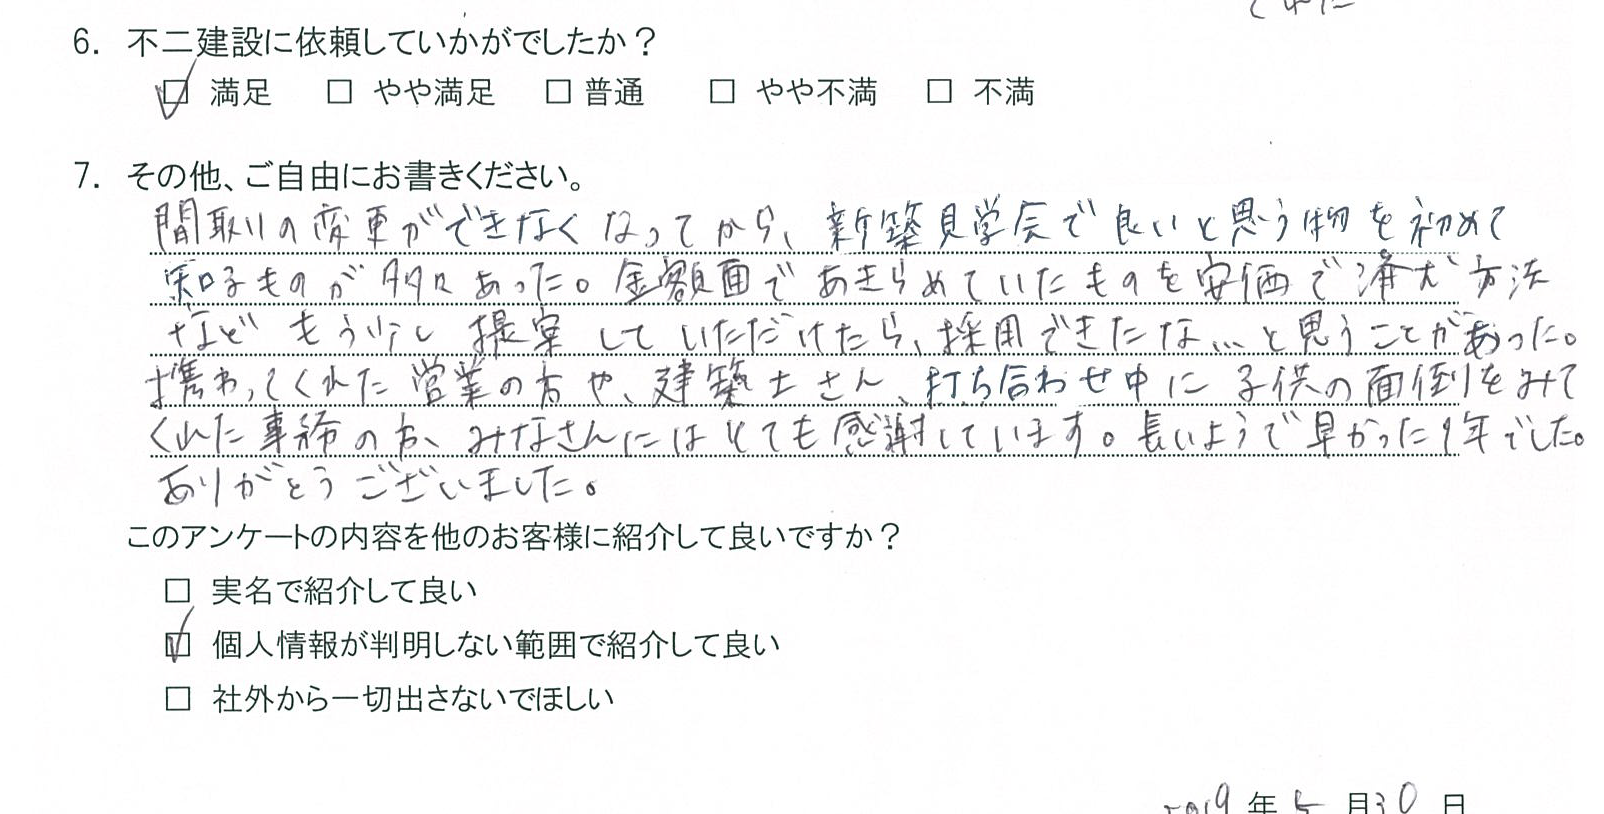 くれた
6. 不二建設に依頼していかがでしたか？
☑ 満足 □ やや満足 □ 普通 □ やや不満 □ 不満
7. その他、ご自由にお書きください。
間取りの変更ができなくなってから、新築見学会で良いと思う物を初めて
知るものが多々あった。金額面であきらめていたものを安価で済む方法
などもう少し提案していただけたら、採用できたな…と思うことがあった。
携わってくれた営業の方や、建築士さん、打ち合わせ中に子供の面倒をみて
くれた事務の方、みなさんにはとても感謝しています。長いようで早かった1年でした。
ありがとうございました。
このアンケートの内容を他のお客様に紹介して良いですか？
□ 実名で紹介して良い
☑ 個人情報が判明しない範囲で紹介して良い
□ 社外から一切出さないでほしい
2019年5月30日